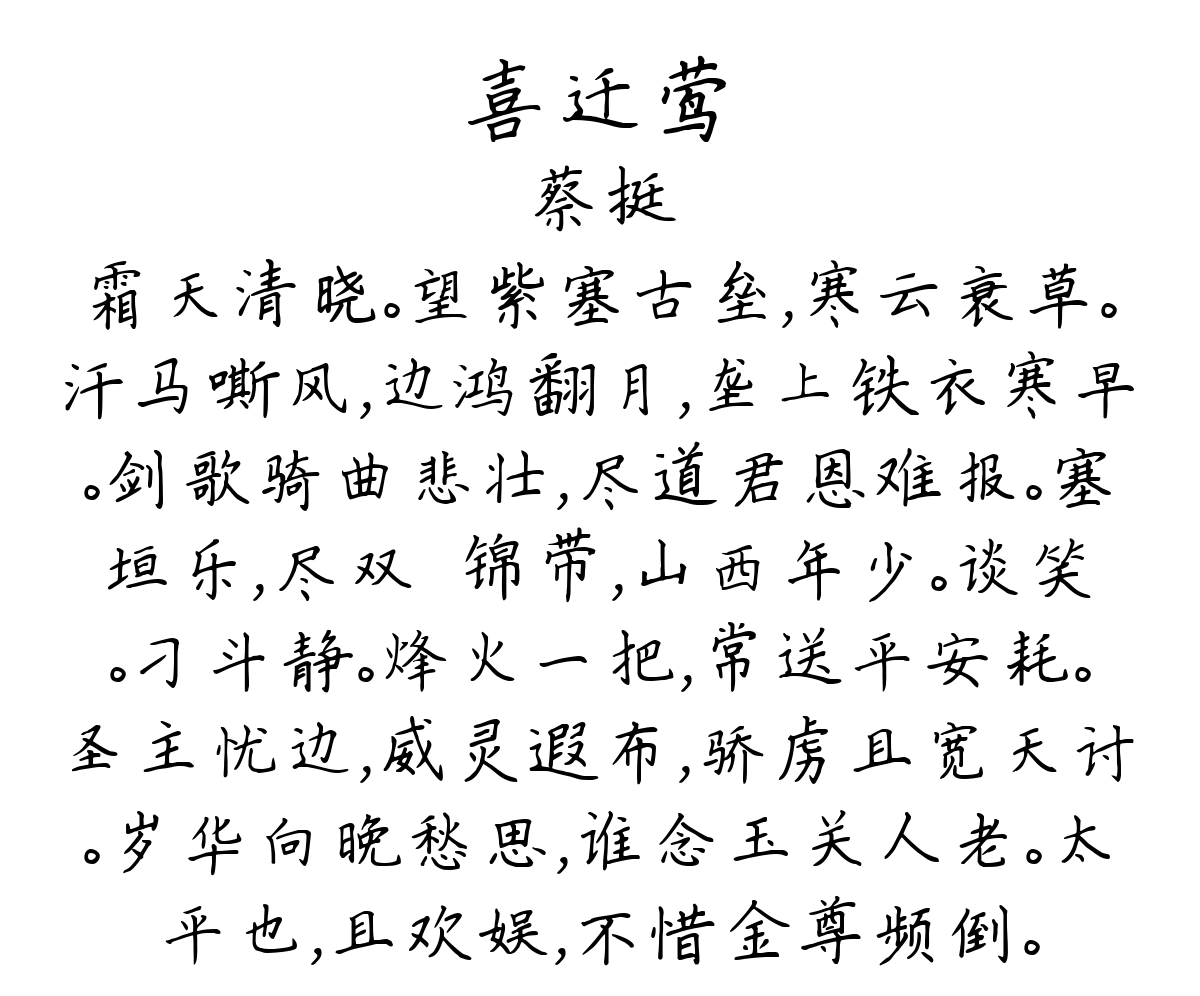 喜迁莺
蔡挺
霜天清晓。望紫塞古垒,寒云衰草。
汗马嘶风,边鸿翻月,垄上铁衣寒早
。剑歌骑曲悲壮,尽道君恩难报。塞
垣乐,尽双 锦带,山西年少。谈笑
。刁斗静。烽火一把,常送平安耗。
圣主忧边,威灵遐布,骄虏且宽天讨
。岁华向晚愁思,谁念玉关人老。太
平也,且欢娱,不惜金尊频倒。